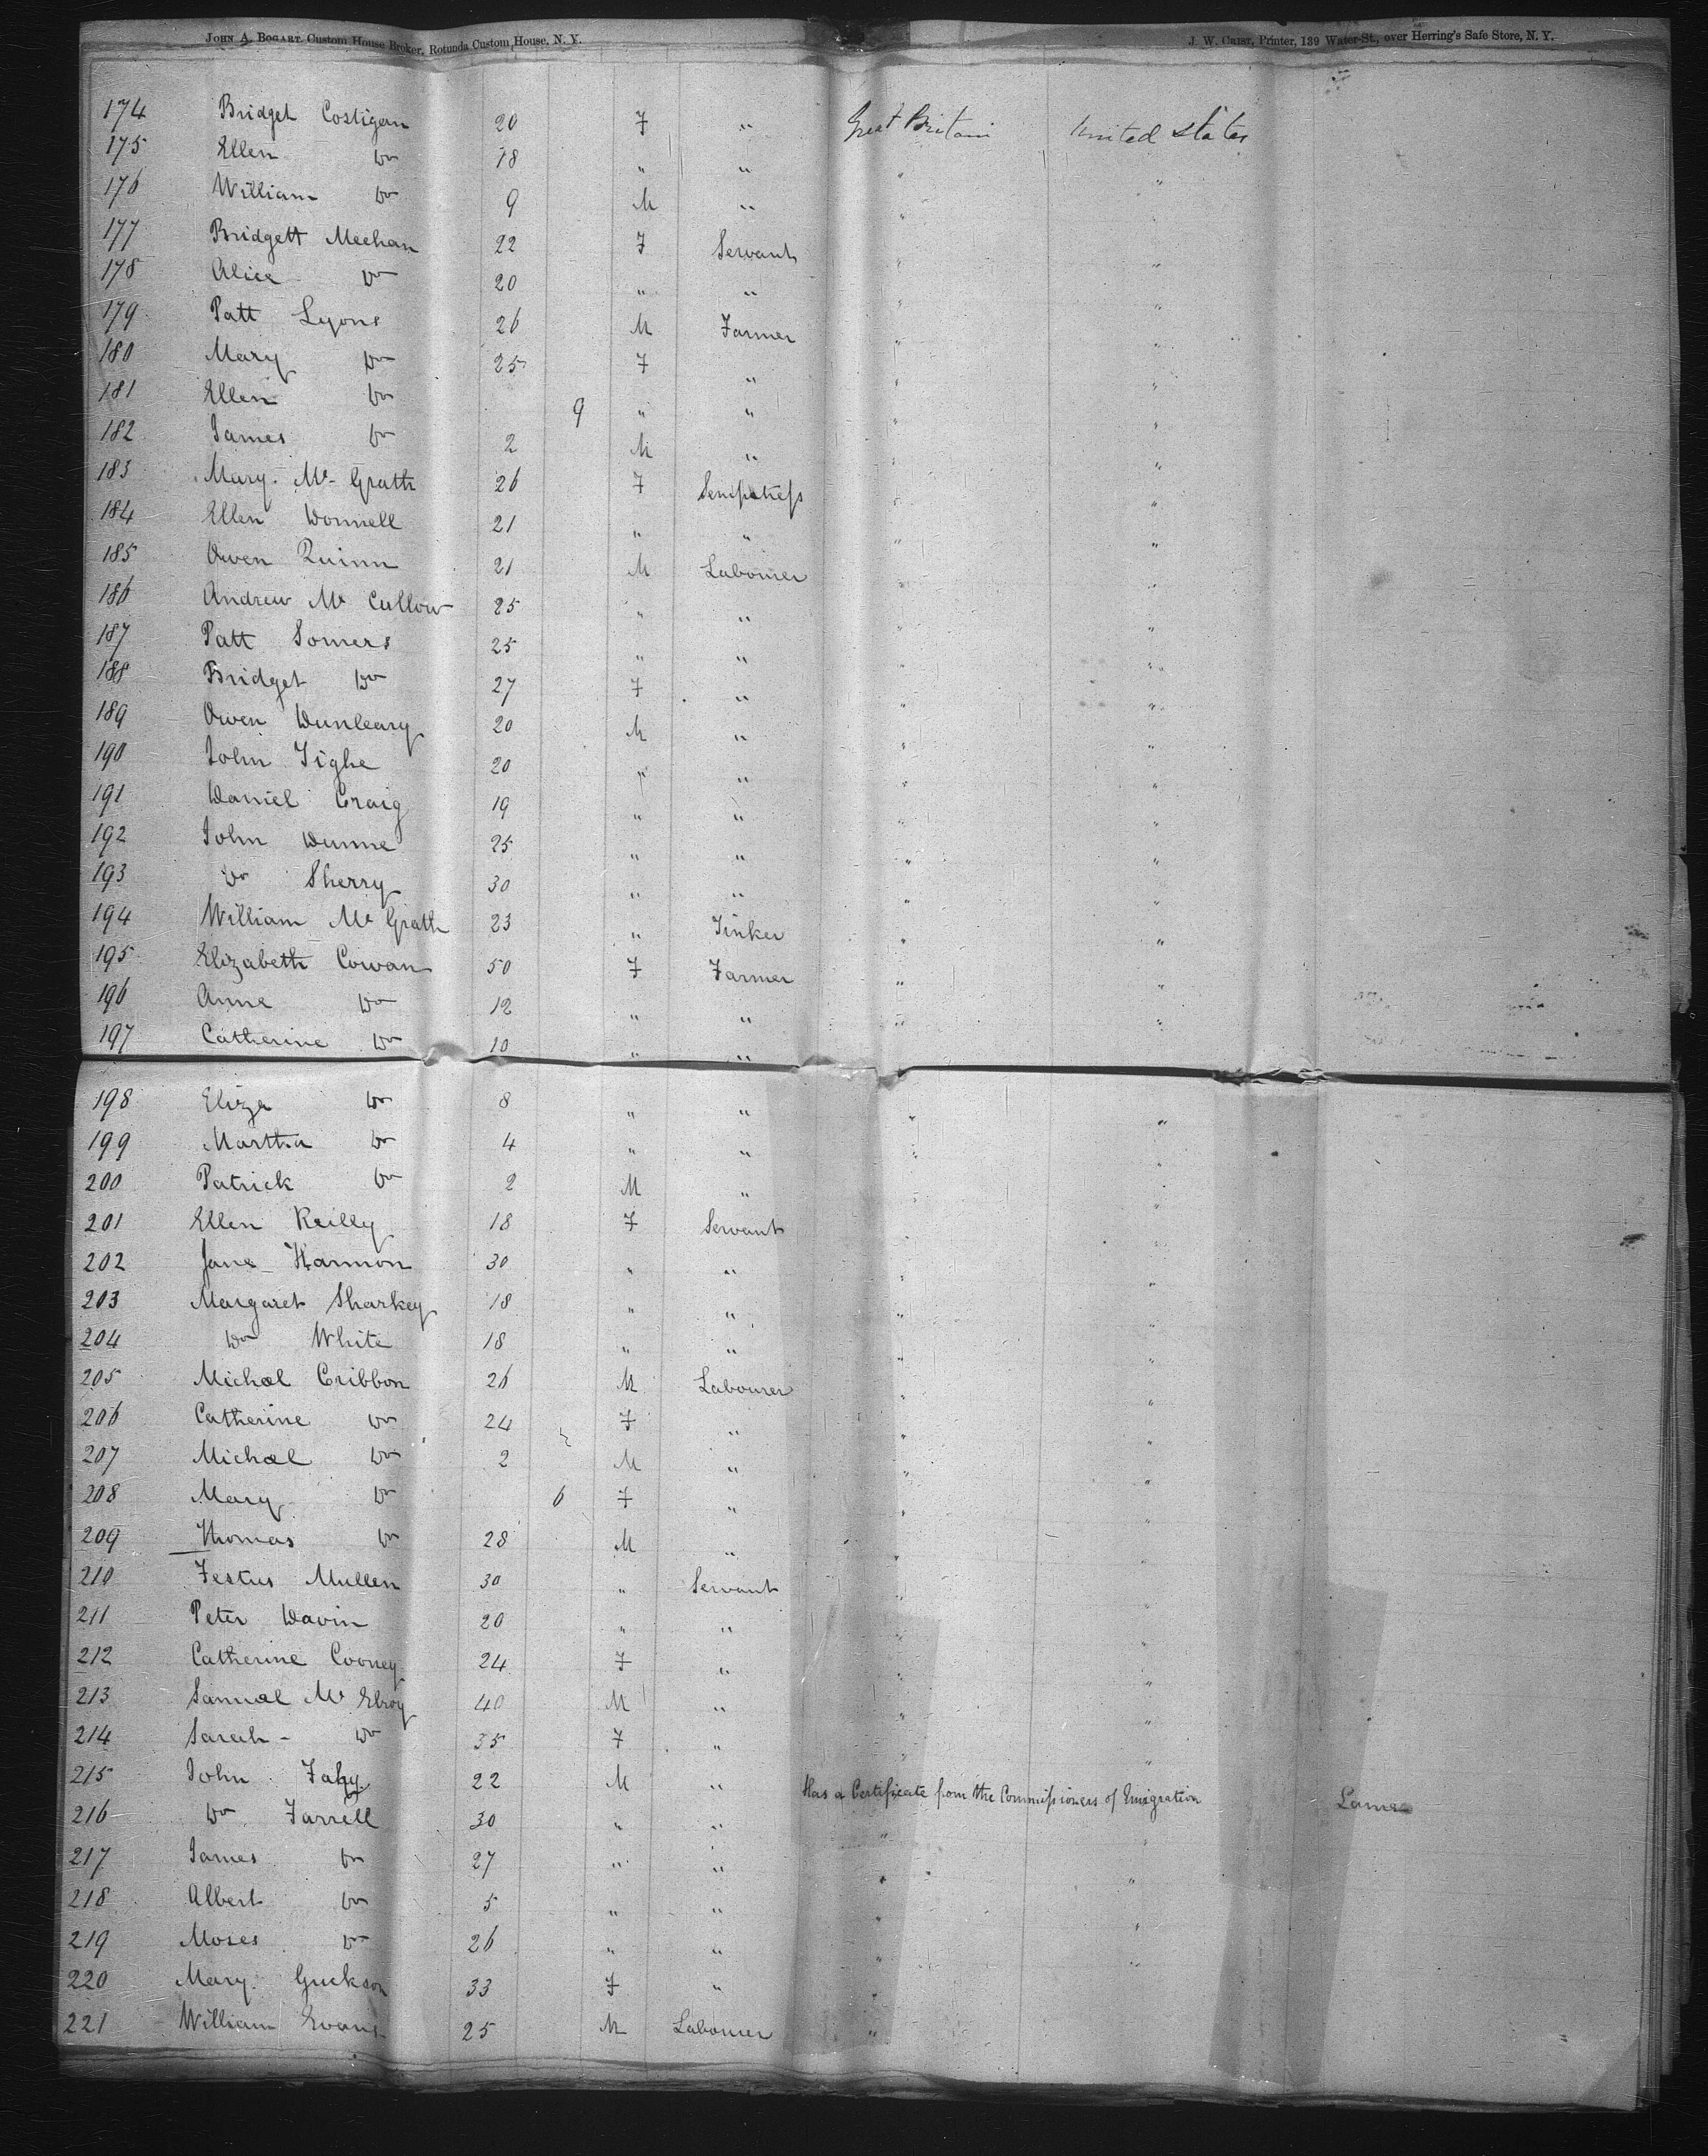 John A. Bogart, Custom House Broker, Rotunda Custom House, N. Y. J. W. Orist, Printer, 139 Water-St., over Herring's Safe Store, N. Y.
174 Bridget Costigan 20 F " Great Britain United States
175 Ellen Do 18 " " " "
176 William Do 9 M " " "
177 Bridgett Meehan 22 F Servant " "
178 Alice Do 20 " " " "
179 Patt Lyons 26 M Farmer " "
180 Mary Do 25 F " " "
181 Ellen Do 9 " " " "
182 James Do 2 M " " "
183 Mary Mc Grath 26 F Sempstress " "
184 Ellen Donnell 21 " " " "
185 Owen Quinn 21 M Labourer " "
186 Andrew Mc Cullow 25 " " " "
187 Patt Somers 25 " " " "
188 Bridget Do 27 F " " "
189 Owen Dunleavy 20 M " " "
190 John Tighe 20 " " " "
191 Daniel Craig 19 " " " "
192 John Dunne 25 " " " "
193 Do Sherry 30 " " " "
194 William Mc Grath 23 " Tinker " "
195 Elizabeth Cowan 50 F Farmer " "
196 Anne Do 12 " " " "
197 Catherine Do 10 " "
198 Eliza Do 8 " " " "
199 Martha Do 4 " " " "
200 Patrick Do 2 M " " "
201 Ellen Reilly 18 F Servant " "
202 Jane Harmon 30 " " " "
203 Margaret Sharkey 18 " " " "
204 Do White 18 " " " "
205 Michael Cribbon 26 M Labourer " "
206 Catherine Do 24 F " " "
207 Michael Do 2 M " " "
208 Mary Do 6 F " " "
209 Thomas Do 28 M " " "
210 Festus Mullen 30 " Servant " "
211 Peter Davin 20 " " " "
212 Catherine Cooney 24 F " " "
213 Samuel Mc Elroy 40 M " " "
214 Sarah Do 35 F " " "
215 John Fahy 22 M " Has a Certificate from the Commissioners of Emigration Lame
216 Do Farrell 30 " " " "
217 James Do 27 " " " "
218 Albert Do 5 " " " "
219 Moses Do 26 " " " "
220 Mary Guckson 33 F " "
221 William Evans 25 M Labourer "